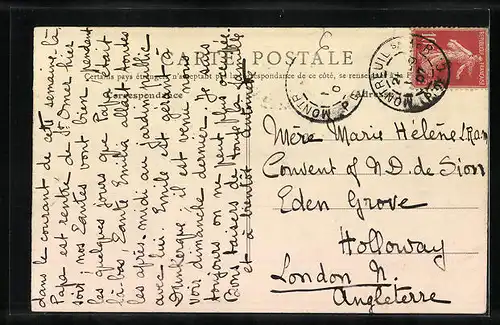 CARTE POSTALE
Certains pays étrangers n'acceptant pas la correspondance de ce côté, se renseigner
Correspondance
Adresse
dans le courant de cette semaine-là
Papa est rentré de St Omer hier
soir ; nos Tantes vont bien. Pendant
les quelques jours que Papa était
là-bas Tante Emilia allait toutes
les après-midi au jardin public
avec lui. Emile est gérant à
Dunkerque il est venu nous
voir dimanche dernier. Je suis
toujours on ne peut plus occupée
Bons baisers de toute la famille
et à bientôt
Mère Marie Hélène
Convent of N.D. de Sion
Eden Grove
Holloway
London N.
Angleterre
MONTREUIL
MONTR
10